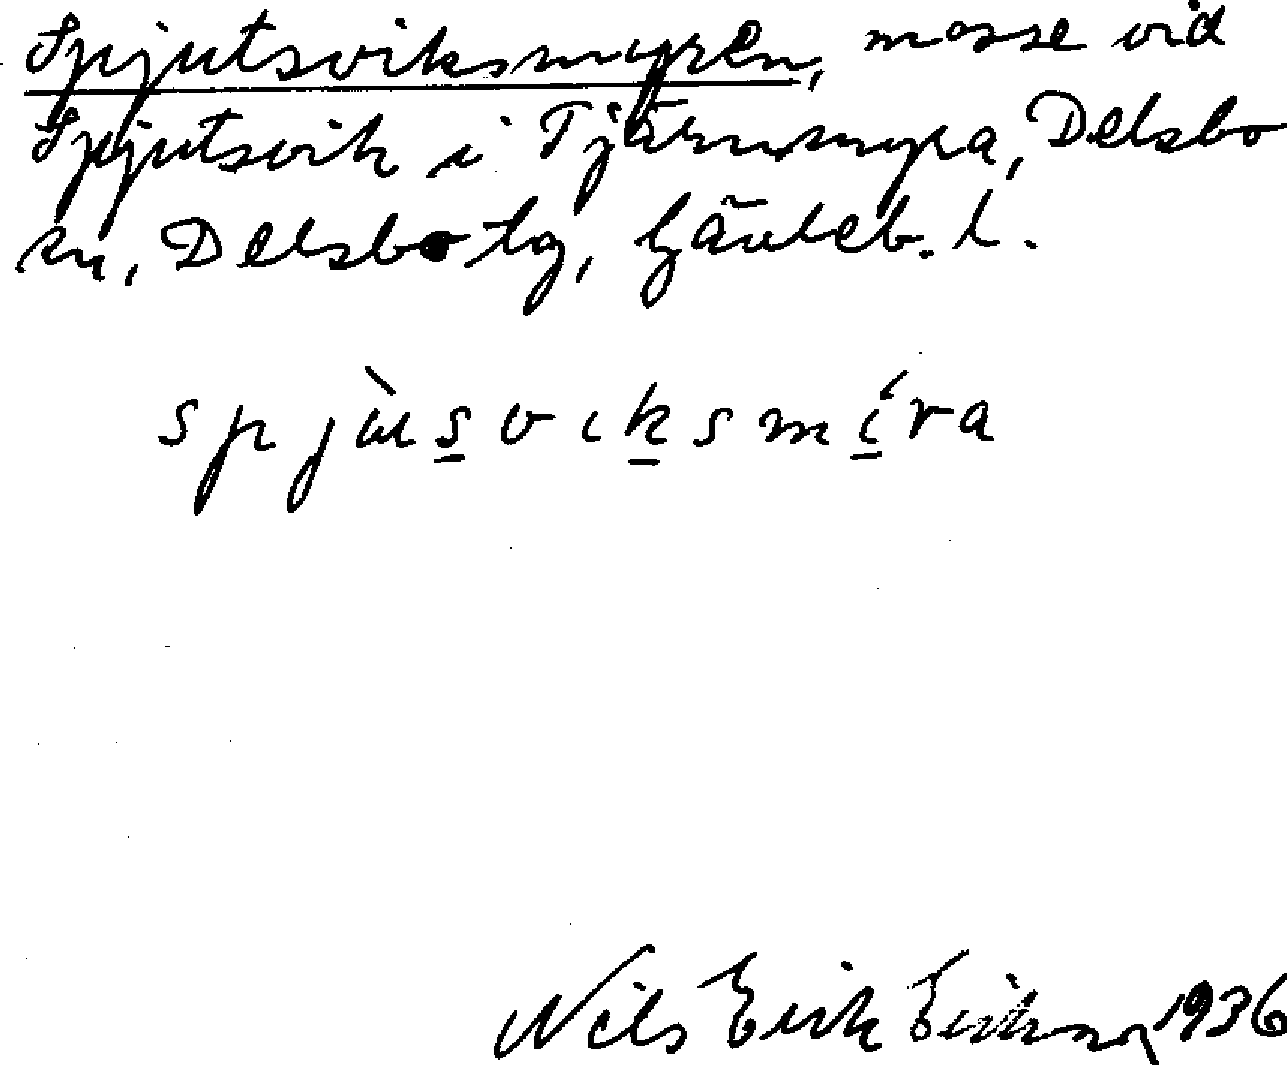 Spjutsviksmyren, mosse vid
Spjutsvik i Tjärnmyra, Delsbo
sn, Delsbo tg, Gävleb. l.
spjùs̲vik̲smí̲ra
Nils Erik Erikson 1936